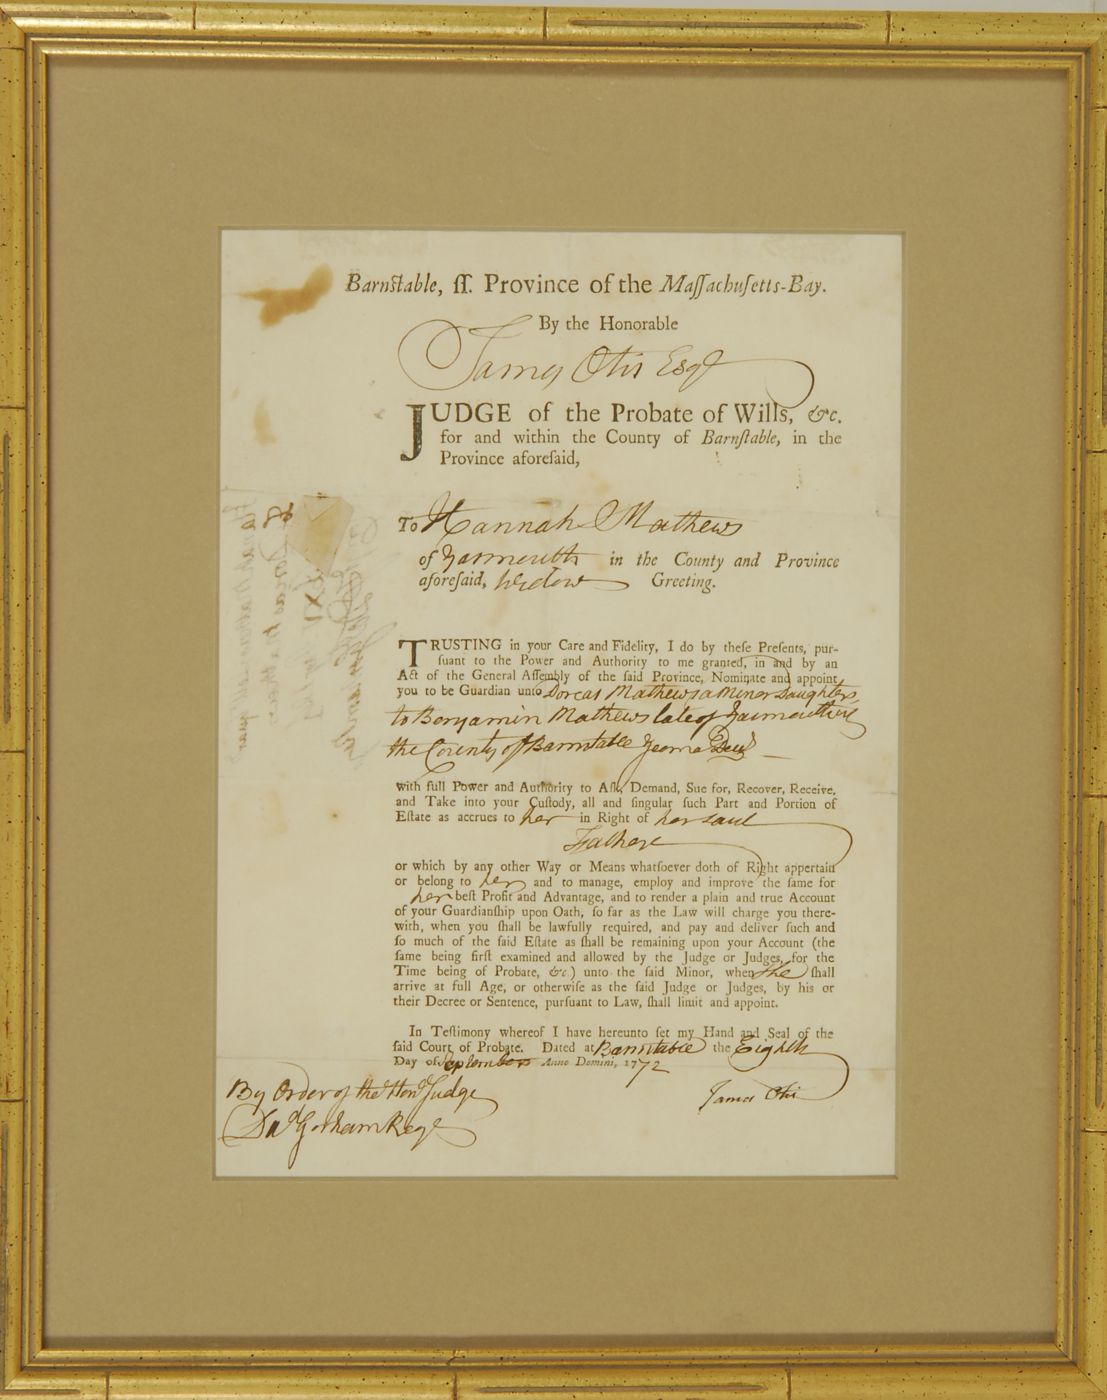 Barnſtable, ſſ. Province of the Maſſachuſetts-Bay.
By the Honorable
James Otis Esqr
JUDGE of the Probate of Wills, &c.
for and within the County of Barnſtable, in the
Province aforeſaid,
To Hannah Mathews
of Yarmouth in the County and Province
aforeſaid, Widow Greeting.
TRUSTING in your Care and Fidelity, I do by theſe Preſents, pur-
ſuant to the Power and Authority to me granted, in and by an
Act of the General Aſſembly of the ſaid Province, Nominate and appoint
you to be Guardian unto Dorcas Mathews a Minor Daughter
to Benjamin Mathews late of Yarmouth in
the County of Barnstable Yeoman Decd
with full Power and Authority to Aſk, Demand, Sue for, Recover, Receive,
and Take into your Cuſtody, all and ſingular ſuch Part and Portion of
Eſtate as accrues to her in Right of her said
Father
or which by any other Way or Means whatſoever doth of Right appertain
or belong to her and to manage, employ and improve the ſame for
her beſt Profit and Advantage, and to render a plain and true Account
of your Guardianſhip upon Oath, ſo far as the Law will charge you there-
with, when you ſhall be lawfully required, and pay and deliver ſuch and
ſo much of the ſaid Eſtate as ſhall be remaining upon your Account (the
ſame being firſt examined and allowed by the Judge or Judges, for the
Time being of Probate, &c.) unto the ſaid Minor, when she ſhall
arrive at full Age, or otherwiſe as the ſaid Judge or Judges, by his or
their Decree or Sentence, purſuant to Law, ſhall limit and appoint.
In Teſtimony whereof I have hereunto ſet my Hand and Seal of the
ſaid Court of Probate. Dated at Barnstable the Eighth
Day of September Anno Domini, 1772
James Otis
By Order of the Hond Judge
Dad Gorham Regr